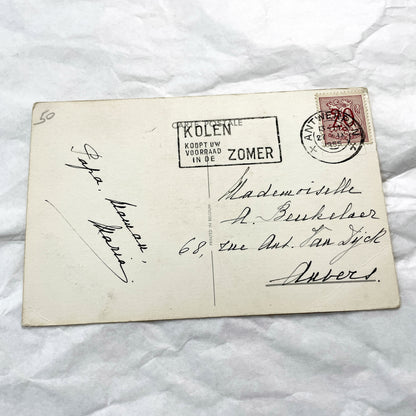 50
CARTE POSTALE
KOLEN
KOOPT UW
VOORRAAD
IN DE ZOMER
ANTWERPEN
1955
20
Papa, Maman,
Maria.
Mademoiselle
A. Beukelaer
68, rue Ant. Van Dyck
Anvers.